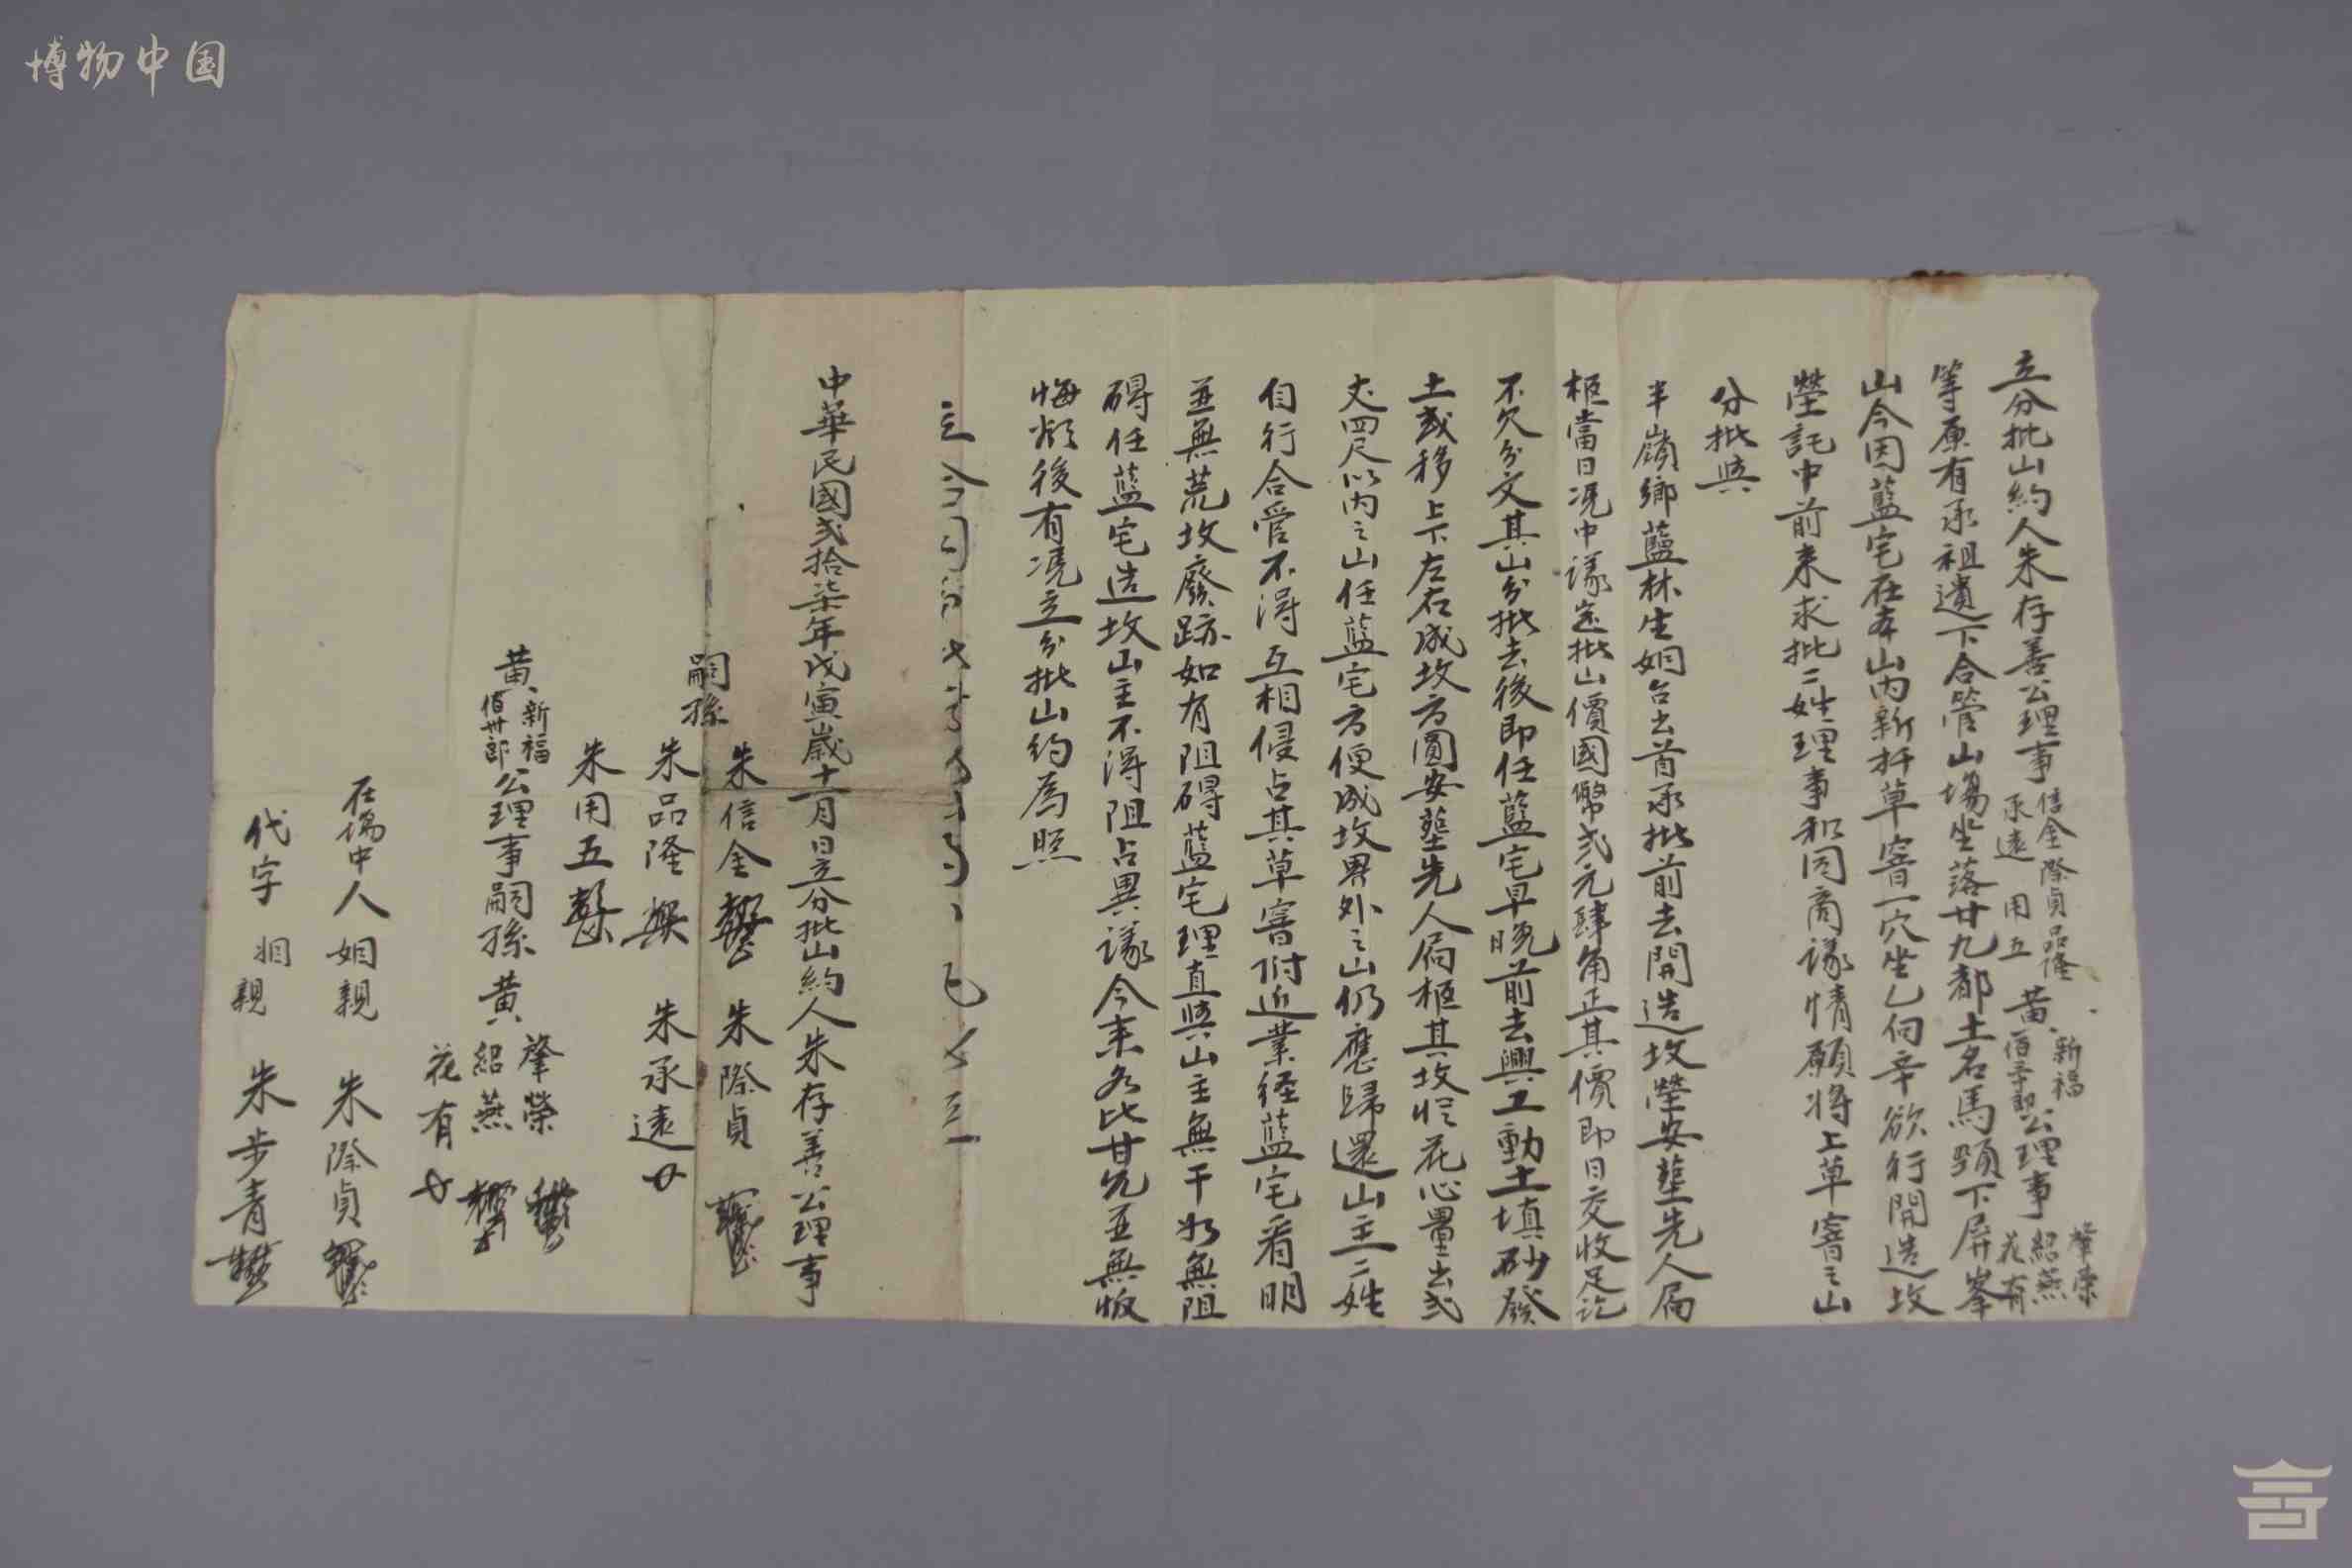 博物中国
立分批山約人朱存善公理事信金際貞品隆承遠用五黄新福公理事肇榮紹燕花有
等原有承祖遺下合管山場坐落廿九都土名馬頸下屏峯
山今因藍宅在本山内新扦草窨一穴坐乙向辛欲行開造坟
塋託中前来求批二姓理事相同商議情願将上草窨之山
分批與
半嶺鄉藍林生姻台出首承批前去開造坟塋安塟先人屙
柩當日凴中議定批山價國幣弍元肆角正其價即日交收足訖
不欠分文其山分批去後即任藍宅早晚前去興工動土填砂發
土或移上下左右成坟方圓安塟先人屙柩其坟從花心量出弍
丈四尺以内之山任藍宅方便成坟界外之山仍應歸還山主二姓
自行合管不得互相侵占其草窨附近業経藍宅看明
並無荒坟廢跡如有阻碍藍宅理直與山主無干如無阻
碍任藍宅造坟山主不得阻占異議今来各比甘允並無皈
悔然後有凴立分批山約為照
中華民國弍拾柒年戊寅歲十一月日立分批山約人朱存善公理事
嗣孫
朱信金 朱際貞
朱品隆 朱承遠
朱用五
黄新福佰卅郎公理事嗣孫黄肇榮紹燕花有
在場中人 姻親 朱際貞
代字 姻親 朱步青